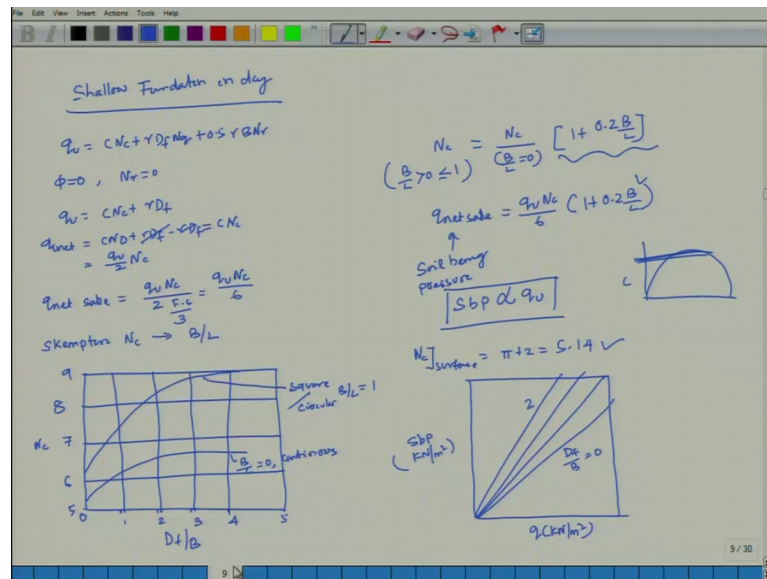 File Edit View Insert Actions Tools Help
B I
Shallow Fundation in clay
qu = CNc + rDfNq + 0.5 r BNr
Φ=0, Nr=0
qu = CNc + rDf
qunet = CND + rDf - rDf = CNc
= qu/2 Nc
qnet sabe = quNc / 2 F.S/3 = quNc/6
Skempton Nc → B/L
9
8
Nc 7
6
5
0 1 2 3 4 5
Df/B
square B/L = 1
/circular
B/L = 0, continous
Nc (B/L > 0 ≤ 1) = Nc (B/L = 0) [1 + 0.2 B/L]
qnet sabe = quNc/6 (1 + 0.2 B/L) ✓
↑
Soil being
pressure
Sbp ∝ qu
C
Nc]surface = π+2 = 5.14 ✓
2
Df/B = 0
Sbp
(KN/m²)
q(KN/m²)
9 / 30
9